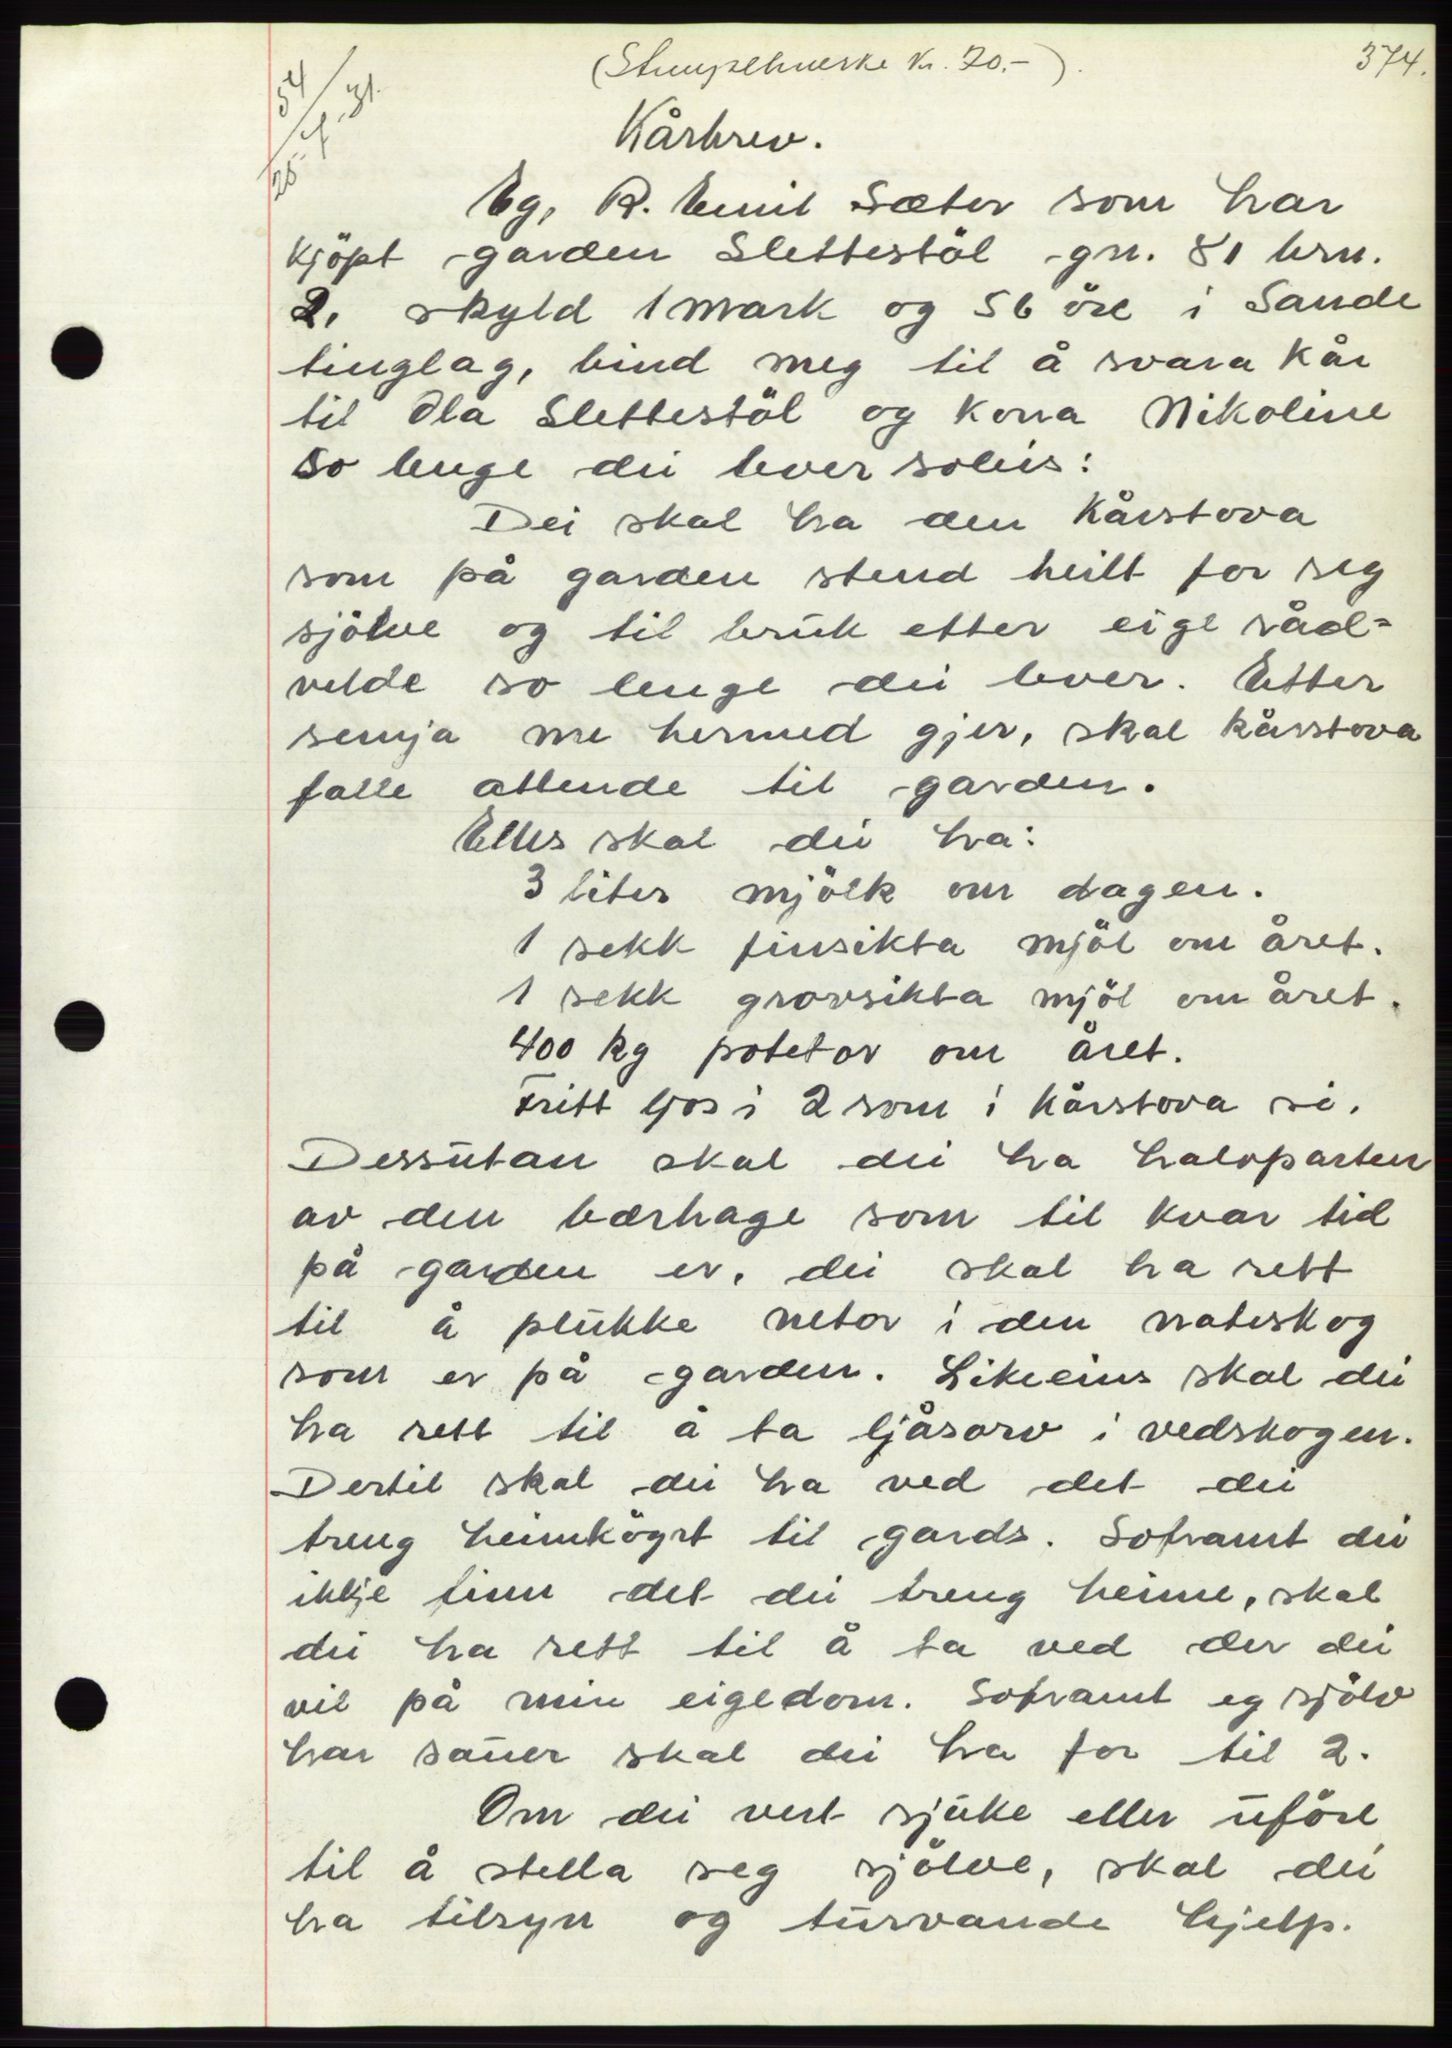 (Stempelmerke kr. 70.-).
374.
54/25-4-31.
Kårbrev.
Eg, R. Emil Sæter som har
kjöpt garden Slettestöl gn. 81 brn.
2, skyld 1 mark og 56 öre i Sande
tinglag, bind meg til å svara kår
til Ola Slettestöl og kona Nikoline
so lenge dei lever soleis:
Dei skal ha den kårstova
som på garden stend heilt for seg
sjölve og til bruk etter eige råd=
velde so lenge dei lever. Etter
semja me hermed gjer, skal kårstova
falle attende til garden.
Elles skal dei ha:
3 liter mjölk om dagen.
1 sekk finsikta mjöl om året.
1 sekk grovsikta mjöl om året.
400 kg potetor om året.
Fritt ljos i 2 rom i kårstova si.
Dessutan skal dei ha halvparten
av den bærhage som til kvar tid
på garden er, dei skal ha rett
til å plukke netor i den nateskog
som er på garden. Likeeins skal dei
ha rett til å ta ljåsorv i vedskogen.
Dertil skal dei ha ved det dei
treng heimkögrt til gards. Soframt dei
ikkje finn det dei treng heime, skal
dei ha rett til å ta ved der dei
vil på min eigedom. Soframt eg sjölv
har sauer skal dei ha for til 2.
Om dei vert sjuke eller uföre
til å stella seg sjölve, skal dei
ha tilsyn og turvande hjelp.